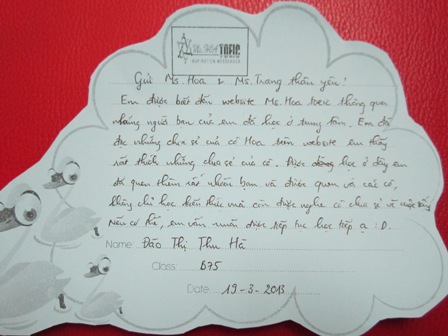 Ms. Hoa TOEIC
Gửi Ms. Hoa & Ms. Trang thân yêu!
Em được biết đến website Ms. Hoa toeic thông qua
những người bạn của em đã học ở trung tâm. Em đã
đọc những chia sẻ của cô Hoa trên website em thấy
rất thích những chia sẻ của cô. Được học ở đây em
đã quen thêm rất nhiều bạn và được quen với các cô,
không chỉ học kiến thức mà còn được nghe cô chia sẻ về cuộc sống
Nếu có thể, em vẫn muốn được tiếp tục học tiếp ạ :D.
Name: Đào Thị Thu Hà
Class: B75
Date: 19-3-2013